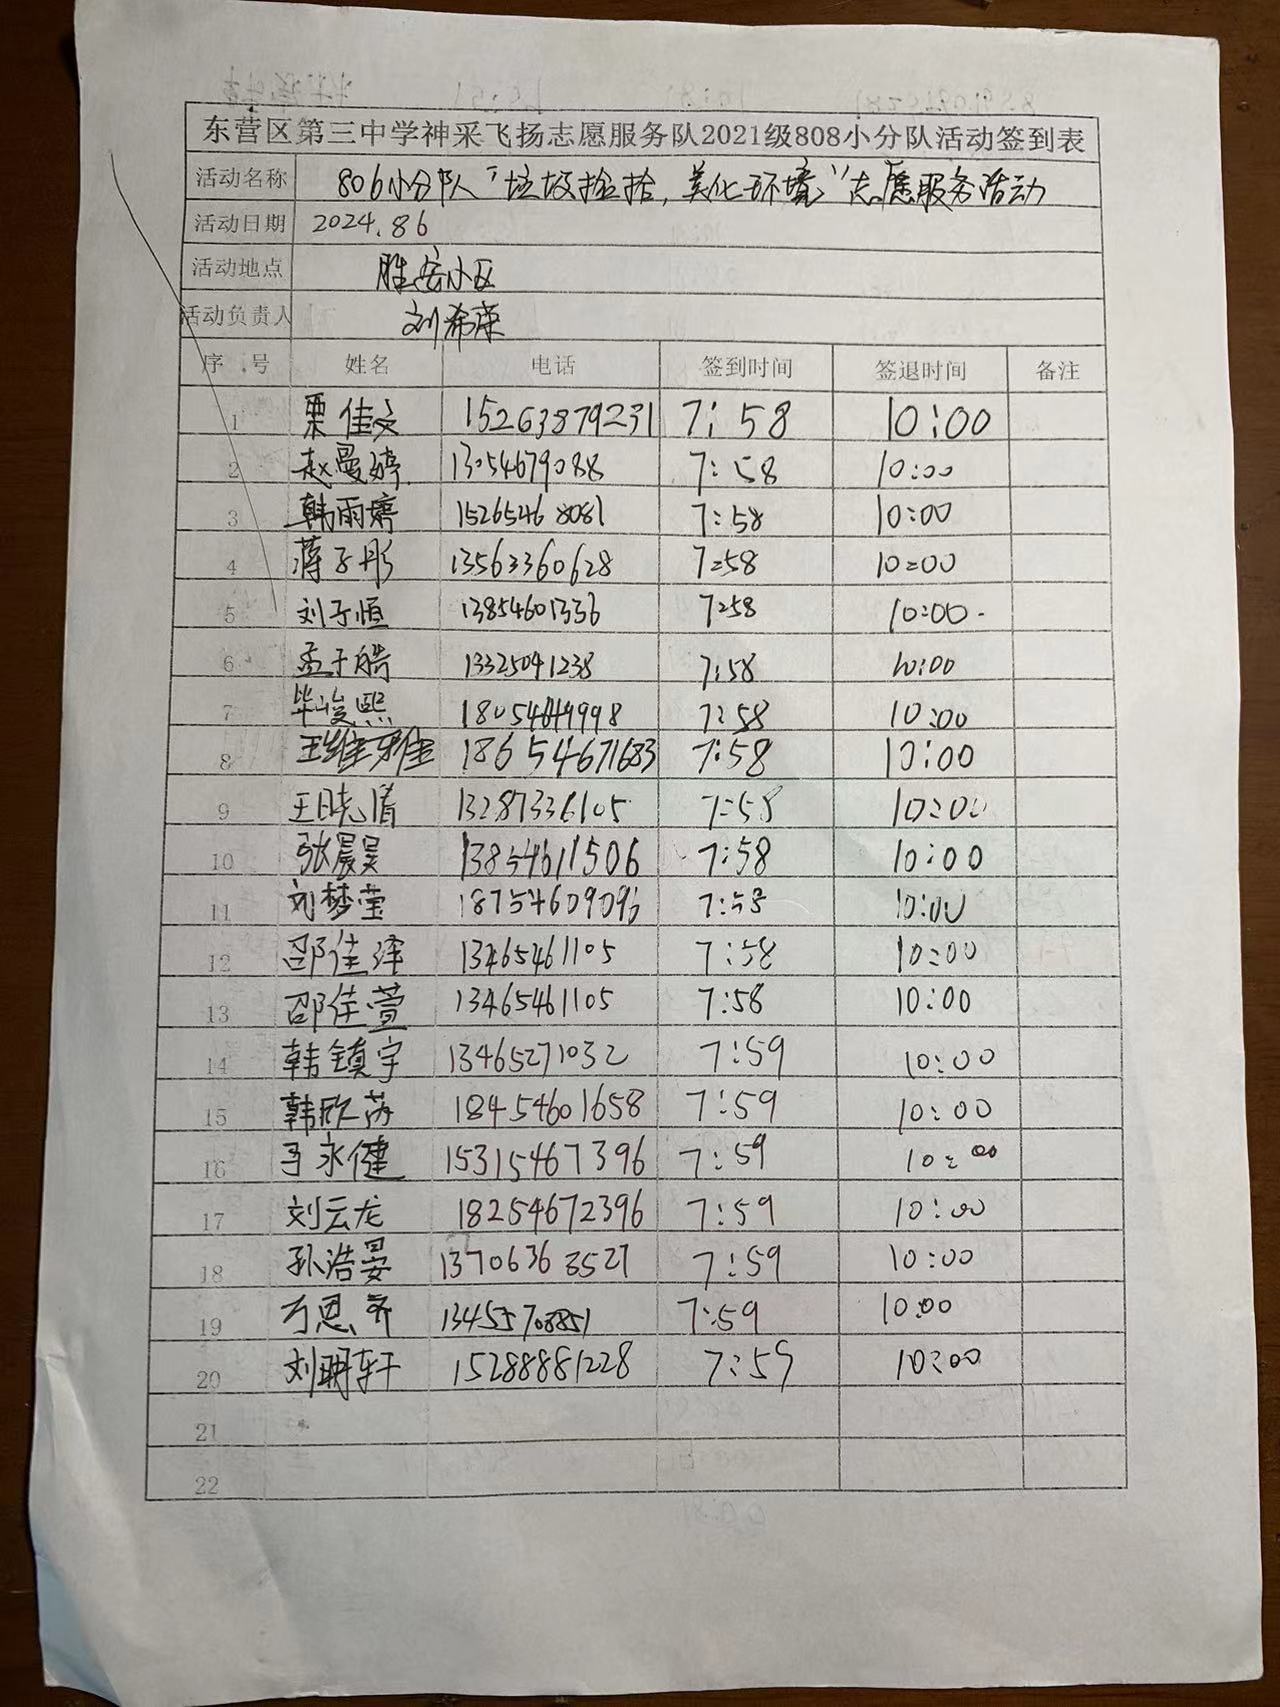 东营区第三中学神采飞扬志愿服务队2021级808小分队活动签到表
活动名称 806小分队“垃圾捡拾,美化环境”志愿服务活动
活动日期 2024.8 6
活动地点 胜安小区
活动负责人 刘希荣
序号 姓名 电话 签到时间 签退时间 备注
1 栗佳文 15263879231 7:58 10:00
2 赵曼婷 13054679088 7:58 10:00
3 韩雨婷 15265468081 7:58 10:00
4 蒋子彤 13563360628 7:58 10:00
5 刘子恒 13854601336 7:58 10:00
6 孟子皓 13325041238 7:58 10:00
7 毕峻熙 7:58 10:00
8 18654671683 7:58 10:00
9 王晓倩 13287336105 7:58 10:00
10 张晨昊 13854611506 7:58 10:00
11 刘梦莹 18754609096 7:58 10:00
12 邵佳泽 13465461105 7:58 10:00
13 邵佳萱 13465461105 7:58 10:00
14 韩镇宇 13465271032 7:59 10:00
15 韩欣芮 18454601658 7:59 10:00
16 于永健 15315467396 7:59 10:00
17 刘云龙 18254672396 7:59 10:00
18 孙浩晏 13706363527 7:59 10:00
19 万恩齐 13455708851 7:59 10:00
20 刘明轩 15288881228 7:59 10:00
21
22